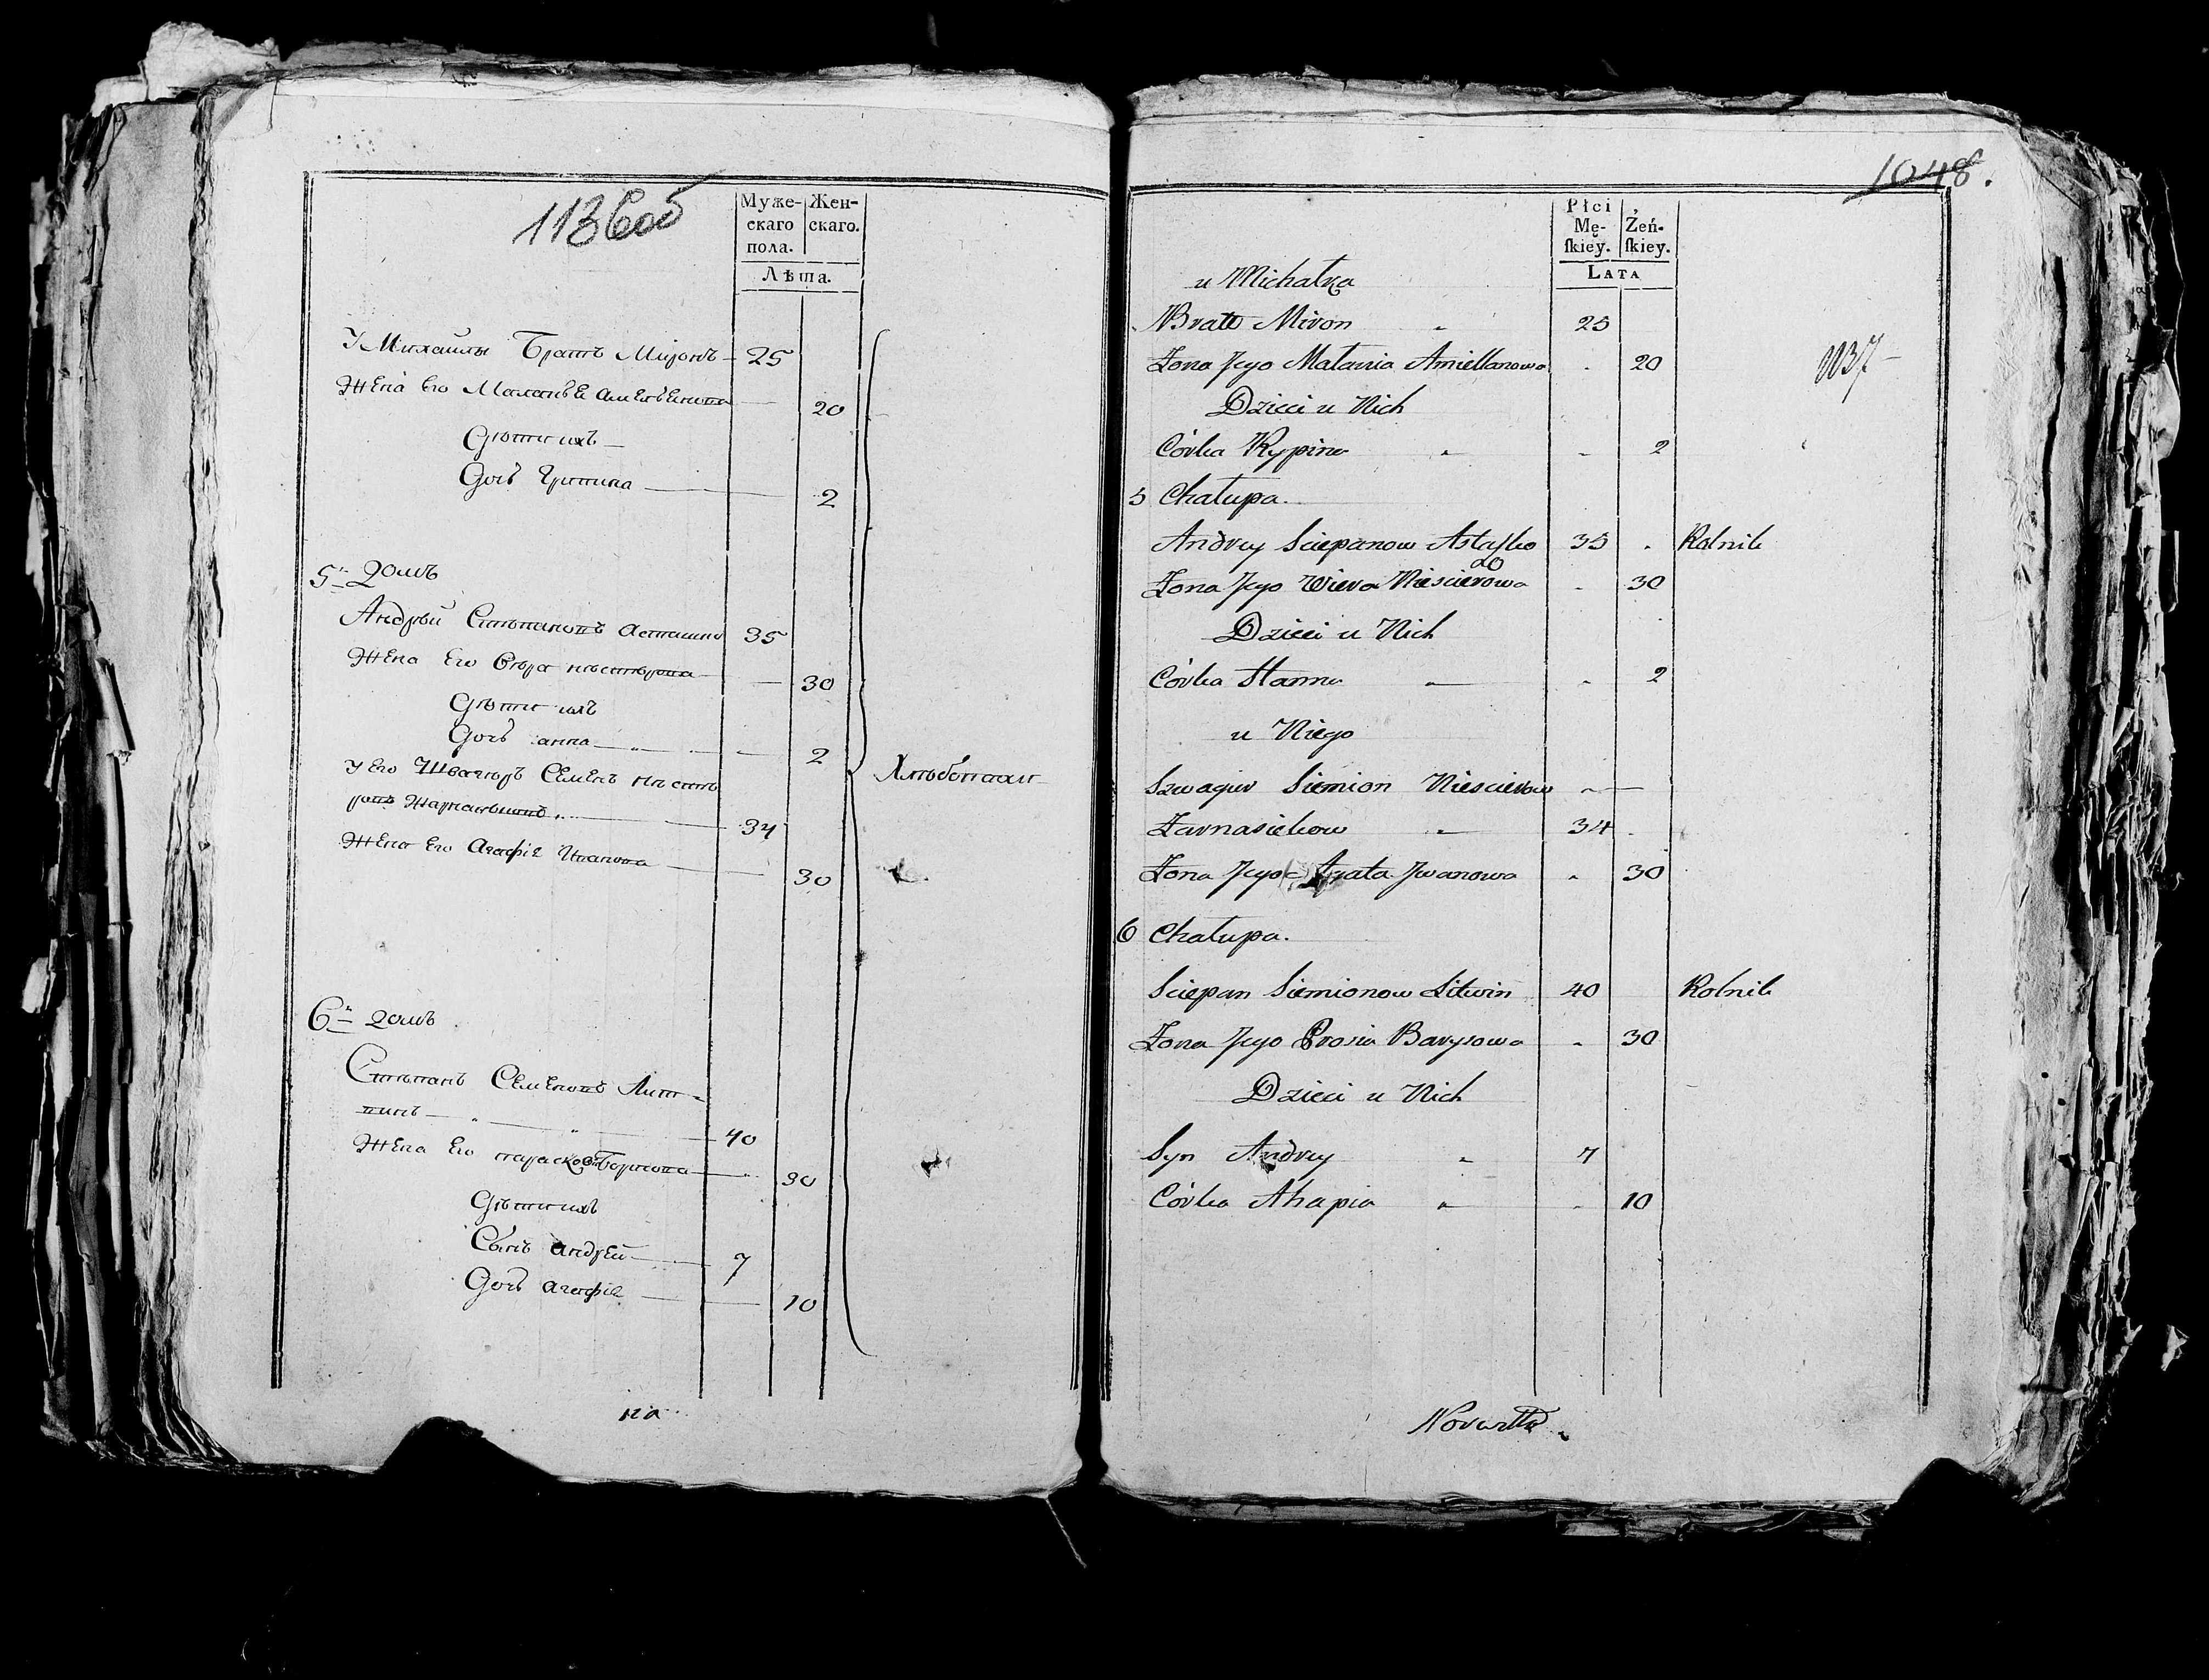 1136 об
Муже-
скаго
пола.
Жен-
скаго.
Лѣта.
У Михайлы Братъ Миронъ 25
Жена Его Маланья 20
Дѣти ихъ
Дочь 2
5й Домъ
Андрей Степановъ Асташко 35
Жена Его Вѣра Нестерова 30
Дѣти ихъ
Дочь анна 2
У Его Швагеръ Семенъ Несте
ровъ 34
Жена Его Агафiя Иванова 30
6й Домъ
Степанъ Семеновъ Лит-
винъ 40
Жена Его Борисова 30
Дѣти ихъ
Сынъ андрей 7
Дочь агафiя 10
на
1048.
Płci
Mę-
ſkiey.
Żeń-
ſkiey.
LATA
u Michałka
Brat Miron 25
Zona Jego Małania Amiellanowa 20
1137
Dzieci u Nich
Córka Kypina 2
5 Chałupa.
Andrey Sciepanow Astaszko 35 Rolnik
Zona Jego Wiera Niescierowa 30
Dzieci u Nich
Córka Hanna 2
u Niego
Szwagier Siemion Niescierow
Zarnasiekow 34
Zona Jego Agata Jwanowa 30
6 Chałupa.
Sciepan Siemionow Litwin 40 Rolnik
Zona Jego Prosia Barysowa 30
Dzieci u Nich
Syn Andrey 7
Córka Ahapia 10